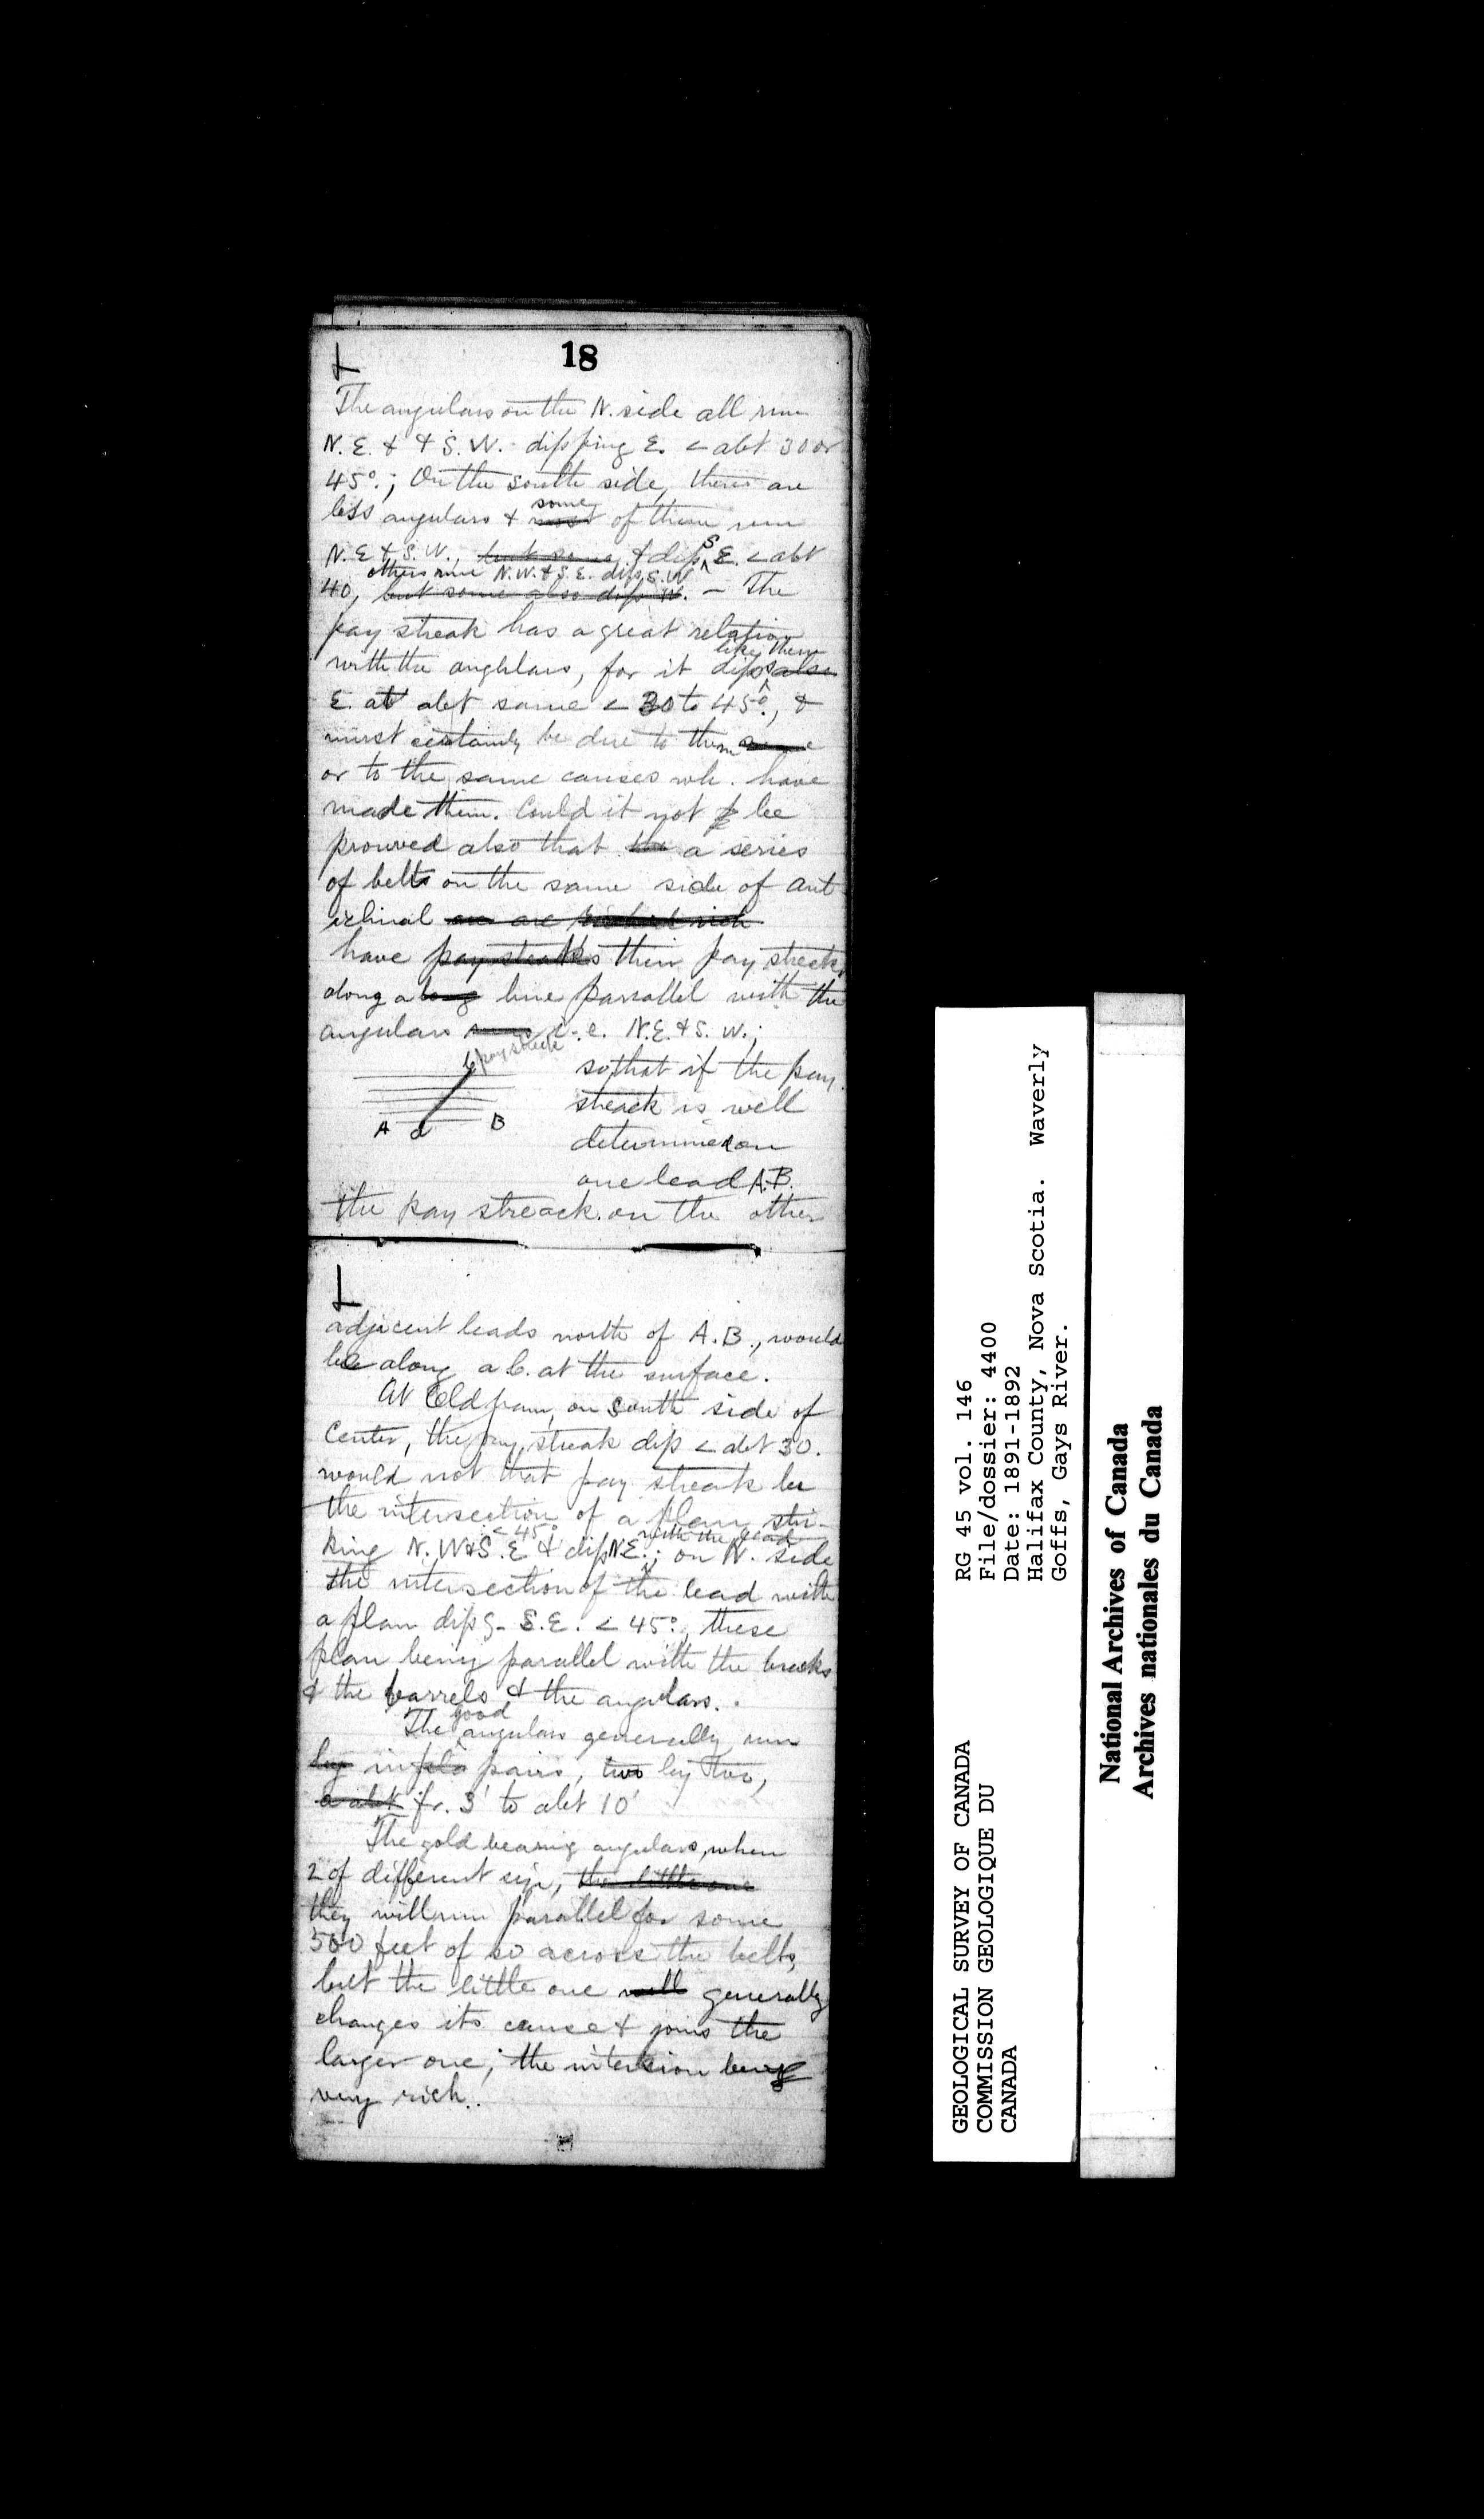 18
The angulars on the N. side all run
N.E. & & S.W. - dipping E. < abt 30 or
45°.; On the south side, there are
less angulars & some most of them run
N.E & S.W., but some & dip S.E. < abt
others run N.W. & S.E. dip S.W
40, but some also dip W. - The
pay streak has a great relation
with the anghlars, for it dips like them also
E. at abt same < 30 to 45°., &
must certainly be due to them same
or to the same causes wh. have
made them. Could it not be
prouved also that the a series
of belts on the same side of ant
iclinal are
have pay streaks their pay streak
along a long line parrallel with the
angulars i.e. N.E. & S.W.;
b pay streak
so that if the pay
streack is well
A a B
determined on
one lead A.B.
the pay streack on the other
adjacent leads north of A.B., would
be along a b. at the surface.
At Oldham, on south side of
Center, the pay streak dip < abt 30.
would not that pay streak be
the intersection of a plan stri-
< 45° with the lead
king N.W & S.E & dip N.E.; on N. side
the intersection of the lead with
a plan dipg. S.E. < 45°., these
plan being parallel with the breaks
& the barrels & the angulars.
The good angulars generally run
by in pairs, two by two,
a abt fr. 3' to abt 10'
The gold bearing angulars, when
2 of different size, the little one
they will run parallel for some
500 feet of so across the belts,
but the little one will generally
changes its cause & joins the
larger one; the intersion being
very rich.
GEOLOGICAL SURVEY OF CANADA
COMMISSION GEOLOGIQUE DU
CANADA
RG 45 vol. 146
File/dossier: 4400
Date: 1891-1892
Halifax County, Nova Scotia. Waverly
Goffs, Gays River.
National Archives of Canada
Archives nationales du Canada